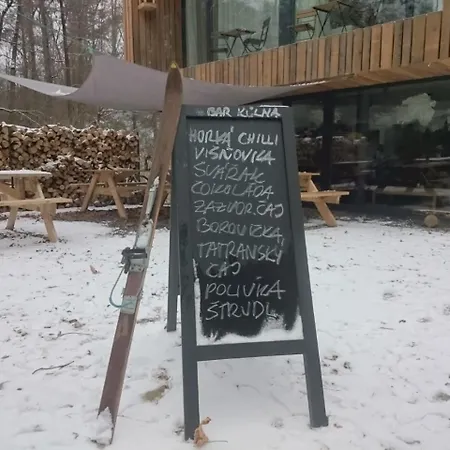 BAR KŮLNA
HORKÁ CHILLI
VIŠŇOVKA
SVAŘÁK
ČOKOLÁDA
ZÁZVOR.ČAJ
BOROVIČKA
TATRANSKÝ
ČAJ
POLÍVKA
ŠTRÚDL